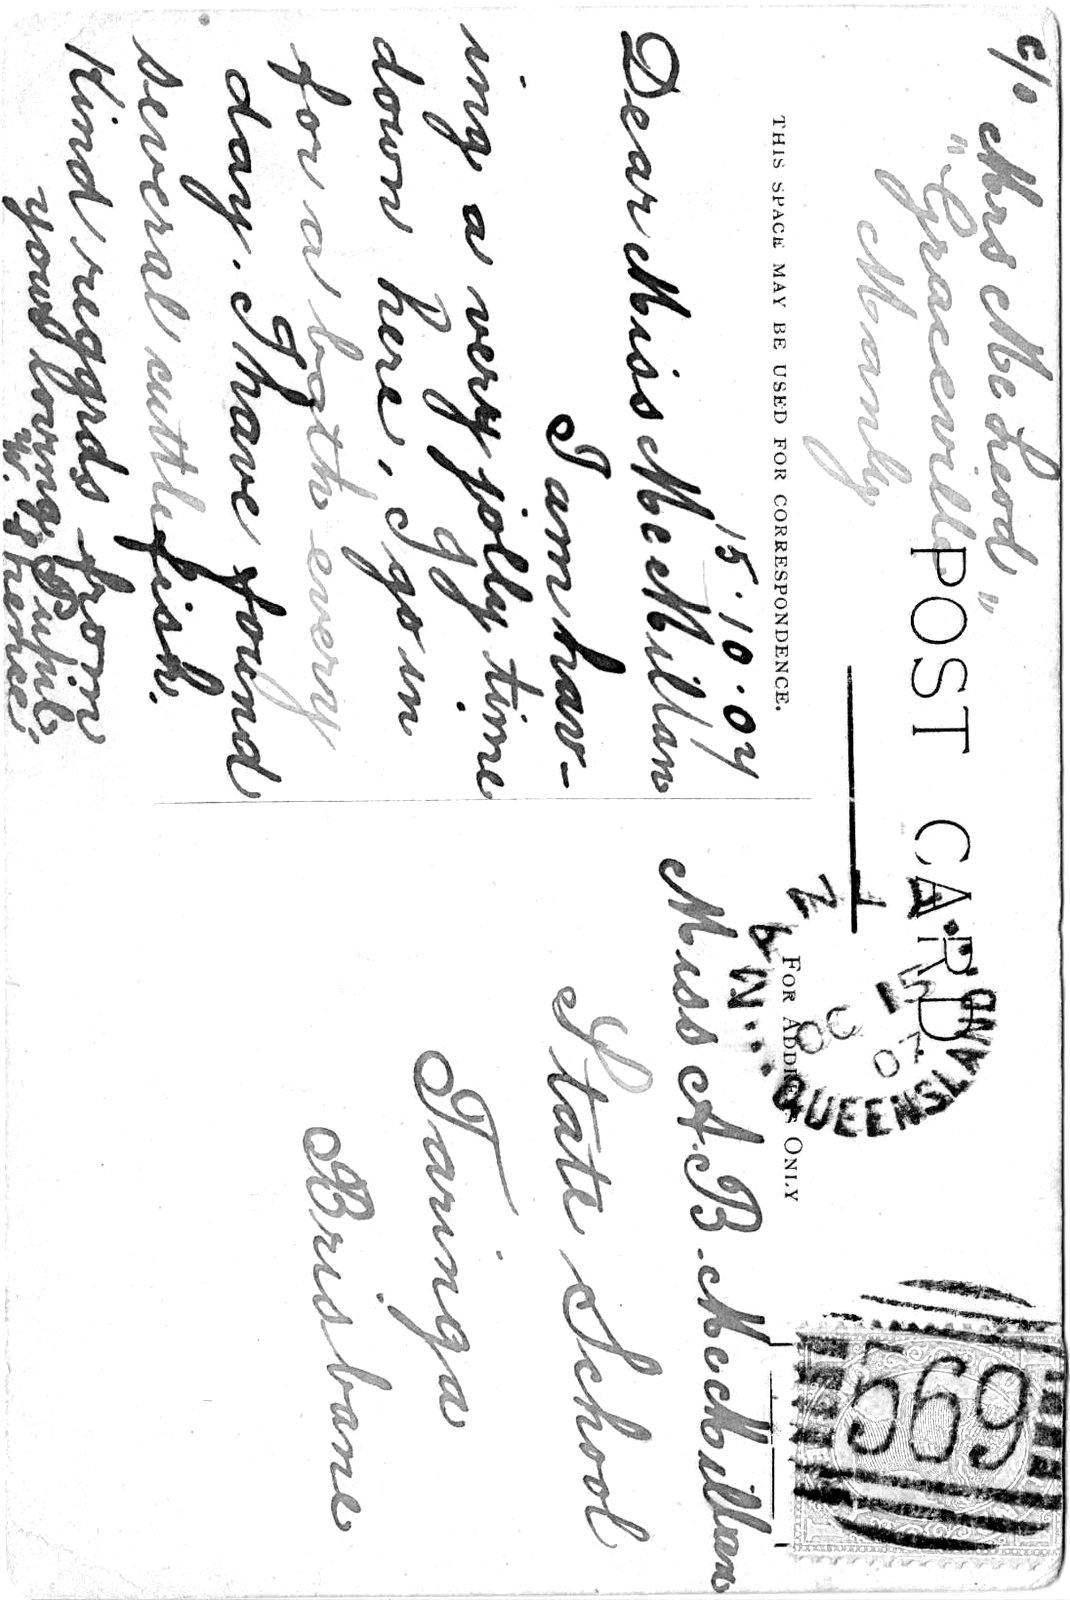 c/o Mrs McLeod
"Graceville"
Manly
POST CARD
THIS SPACE MAY BE USED FOR CORRESPONDENCE.
15.10.07
Dear Miss McMillan
I am hav-
ing a very jolly time
down here. I go in
for a bath every
day. I have found
several cuttle fish.
Kind regards from
your loving Pupil
FOR ADDRESS ONLY
Miss A.B. McMillan
State School
Taringa
Brisbane
QUEENSLAND
15
OC
07
569